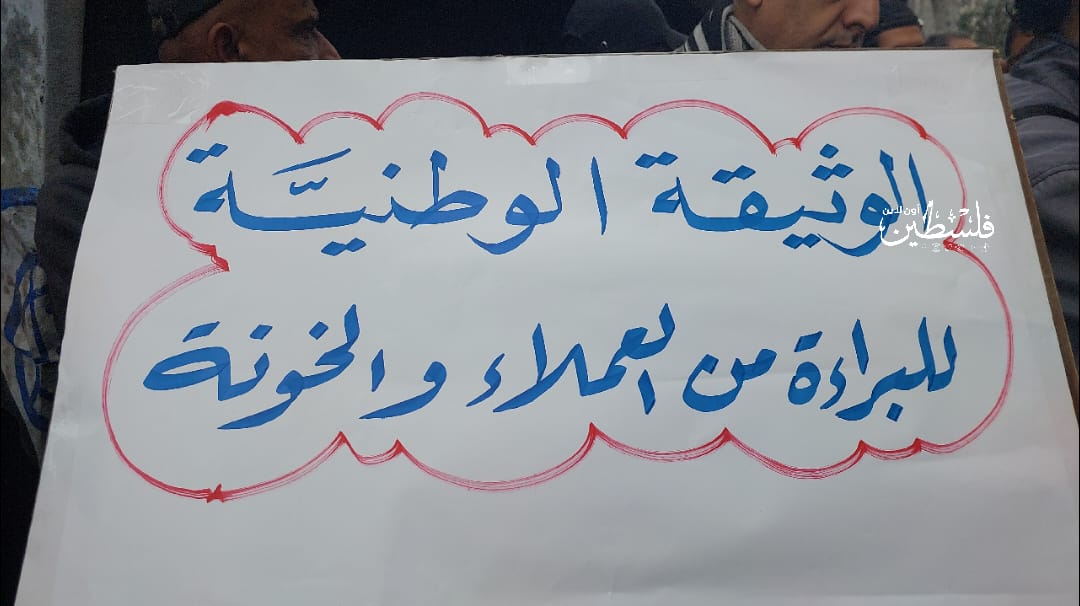 الوثيقة الوطنيَّة
فلسطين أون لاين
للبراءة من العملاء والخونة